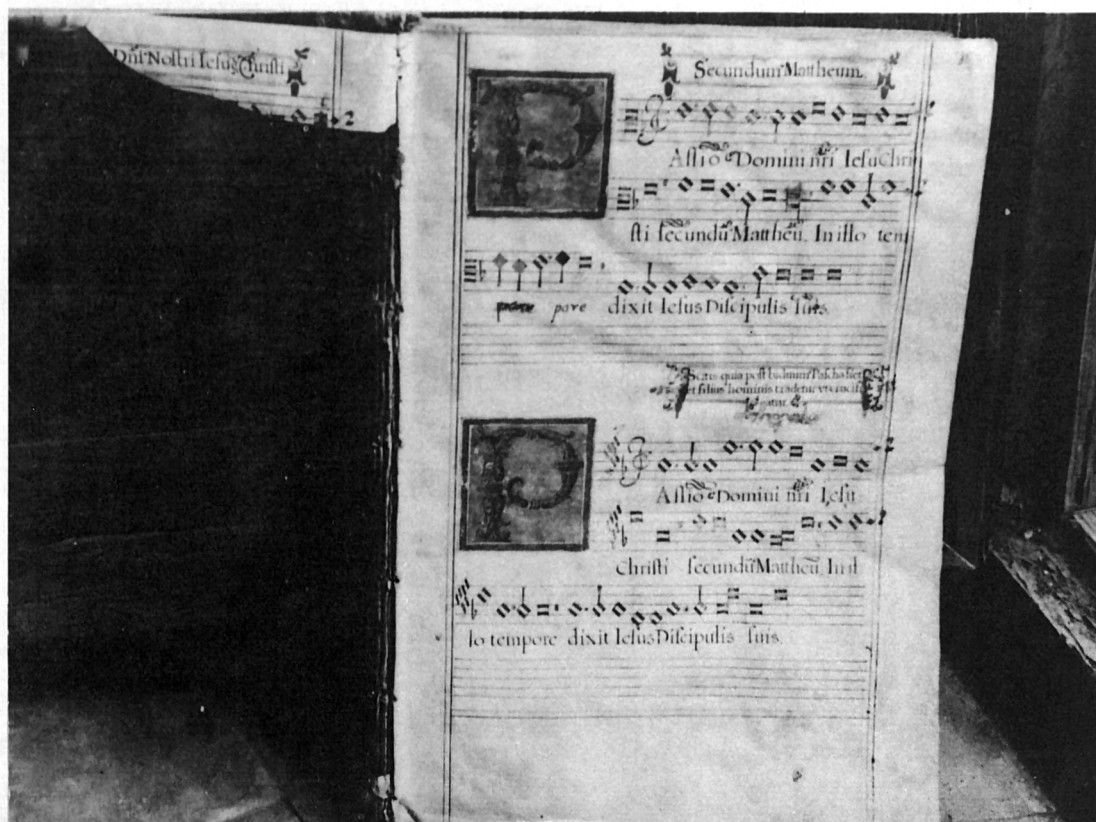 Dñi Nostri Iesu Christi
Secundum Mattheum.
PAssio Domini nr̃i Iesu Chri
sti secundũ Mattheũ. In illo tem
pore dixit Iesus Discipulis suis.
Scitis quia post biduum Pascha fiet
et filius hominis tradetur ut crucifi
gatur.
PAssio Domini nr̃i Iesu
Christi secundũ Mattheũ. In il
lo tempore dixit Iesus Discipulis suis.